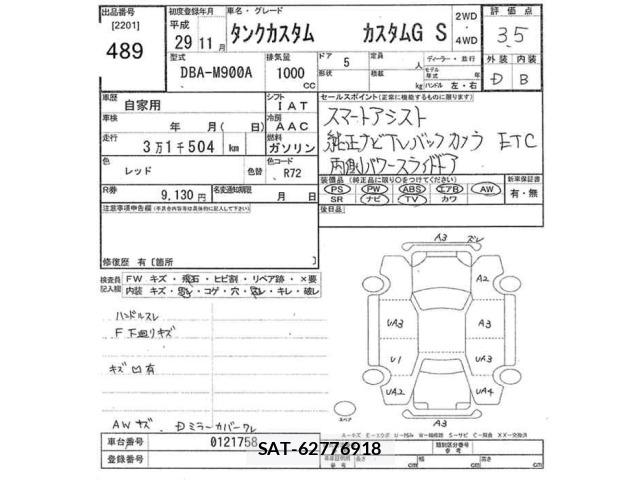 出品番号
[2201]
489
初度登録年月
平成
29年 11月
車名・グレード
タンクカスタム カスタムG S
2WD
・
4WD
評価点
3.5
型式
DBA-M900A
排気量
1000
CC
ドア
5
形状
定員
人
積載
kg
ディーラー・並行
モデル
年式 年
ハンドル 左・右
外装 内装
D B
車歴
自家用
シフト
IAT
車検
年 月( 日)
冷房
AAC
走行
3万1千504 km
燃料
ガソリン
色
レッド
色替
色コード
R72
R券
9,130 円
名変期限
月 日
セールスポイント(正常に機能するものに限ります。)
スマートアシスト
純正ナビTVバックカメラ ETC
両側パワースライドドア
装備品 (純正品に限り○をつけてください)
PS PW ABS エアB AW
SR ナビ TV カワ
新車保証書
有・無
後日品
注意事項申告欄
修復歴 有〔箇所 〕
検査員
記入欄
FW キズ・飛石・ヒビ割・リペア跡・×要
内装 キズ・コゲ・穴・キレ・破レ
ハンドルスレ
F下廻リキズ
キズ凹有
AWキズ、Dミラーカバーワレ
A3 ズレ
A2
UA3 A3
U1 UA3
UA2 UA4
スペア
A3
車台番号 0121758
登録番号
類別区分番号
長さ cm 幅 cm 高さ cm
SAT-62776918